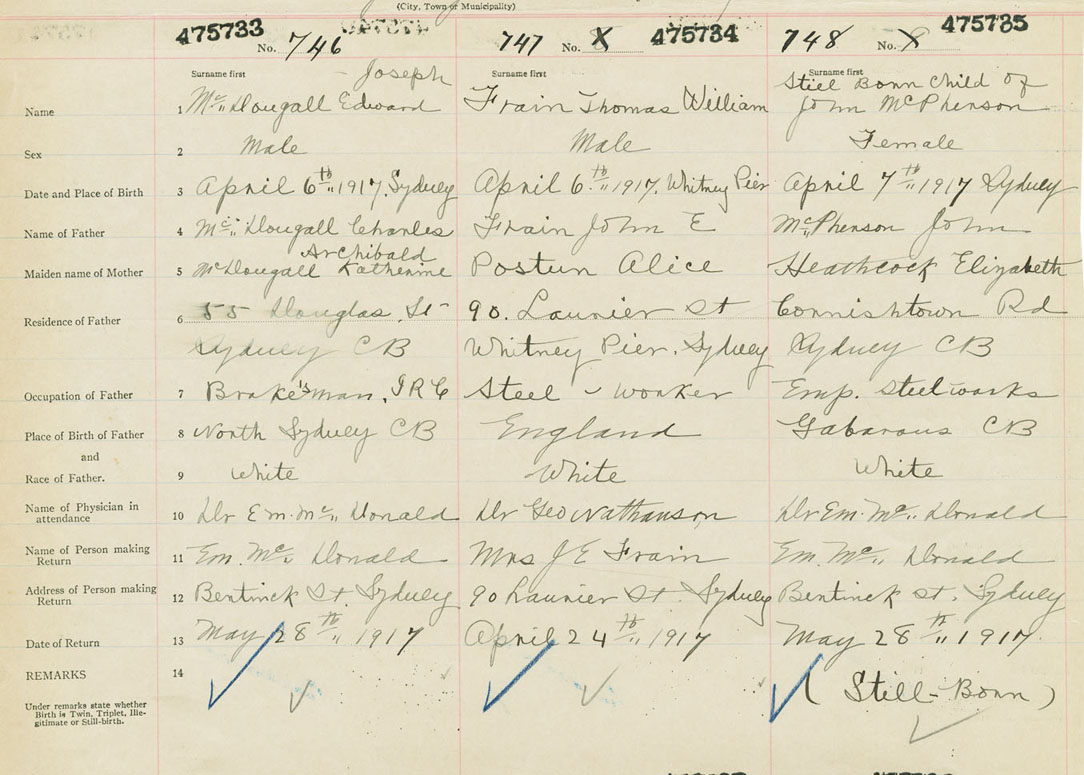 (City, Town or Municipality)
475733 475734 475735
No. 746 747 No. X 748 No. X
Surname first Surname first Surname first
Name 1 McDougall Edward Joseph Frain Thomas William Still Born Child of John McPherson
Sex 2 Male Male Female
Date and Place of Birth 3 April 6th 1917, Sydney April 6th 1917, Whitney Pier April 7th 1917 Sydney
Name of Father 4 Mc Dougall Charles Archibald Frain John E McPherson John
Maiden name of Mother 5 McDougall Katherine Postun Alice Heathcock Elizabeth
Residence of Father 6 55 Douglas St 90. Launier St Cornishtown Rd
Sydney CB Whitney Pier, Sydney Sydney CB
Occupation of Father 7 Brake'sman, I R C Steel - worker Emp. steelworks
Place of Birth of Father 8 North Sydney CB England Gabarous CB
and
Race of Father. 9 White White White
Name of Physician in attendance 10 Dr E m. Mc Donald Dr Geo Nathanson Dr Em. Mc Donald
Name of Person making Return 11 Em. Mc Donald Mrs J E Frain Em. Mc Donald
Address of Person making Return 12 Bentinck St. Sydney 90 Launier St. Sydney Bentinck St, Sydney
Date of Return 13 May 28th 1917 April 24th 1917 May 28th 1917.
REMARKS 14 (Still-Born)
Under remarks state whether
Birth is Twin, Triplet, Ille-
gitimate or Still-birth.